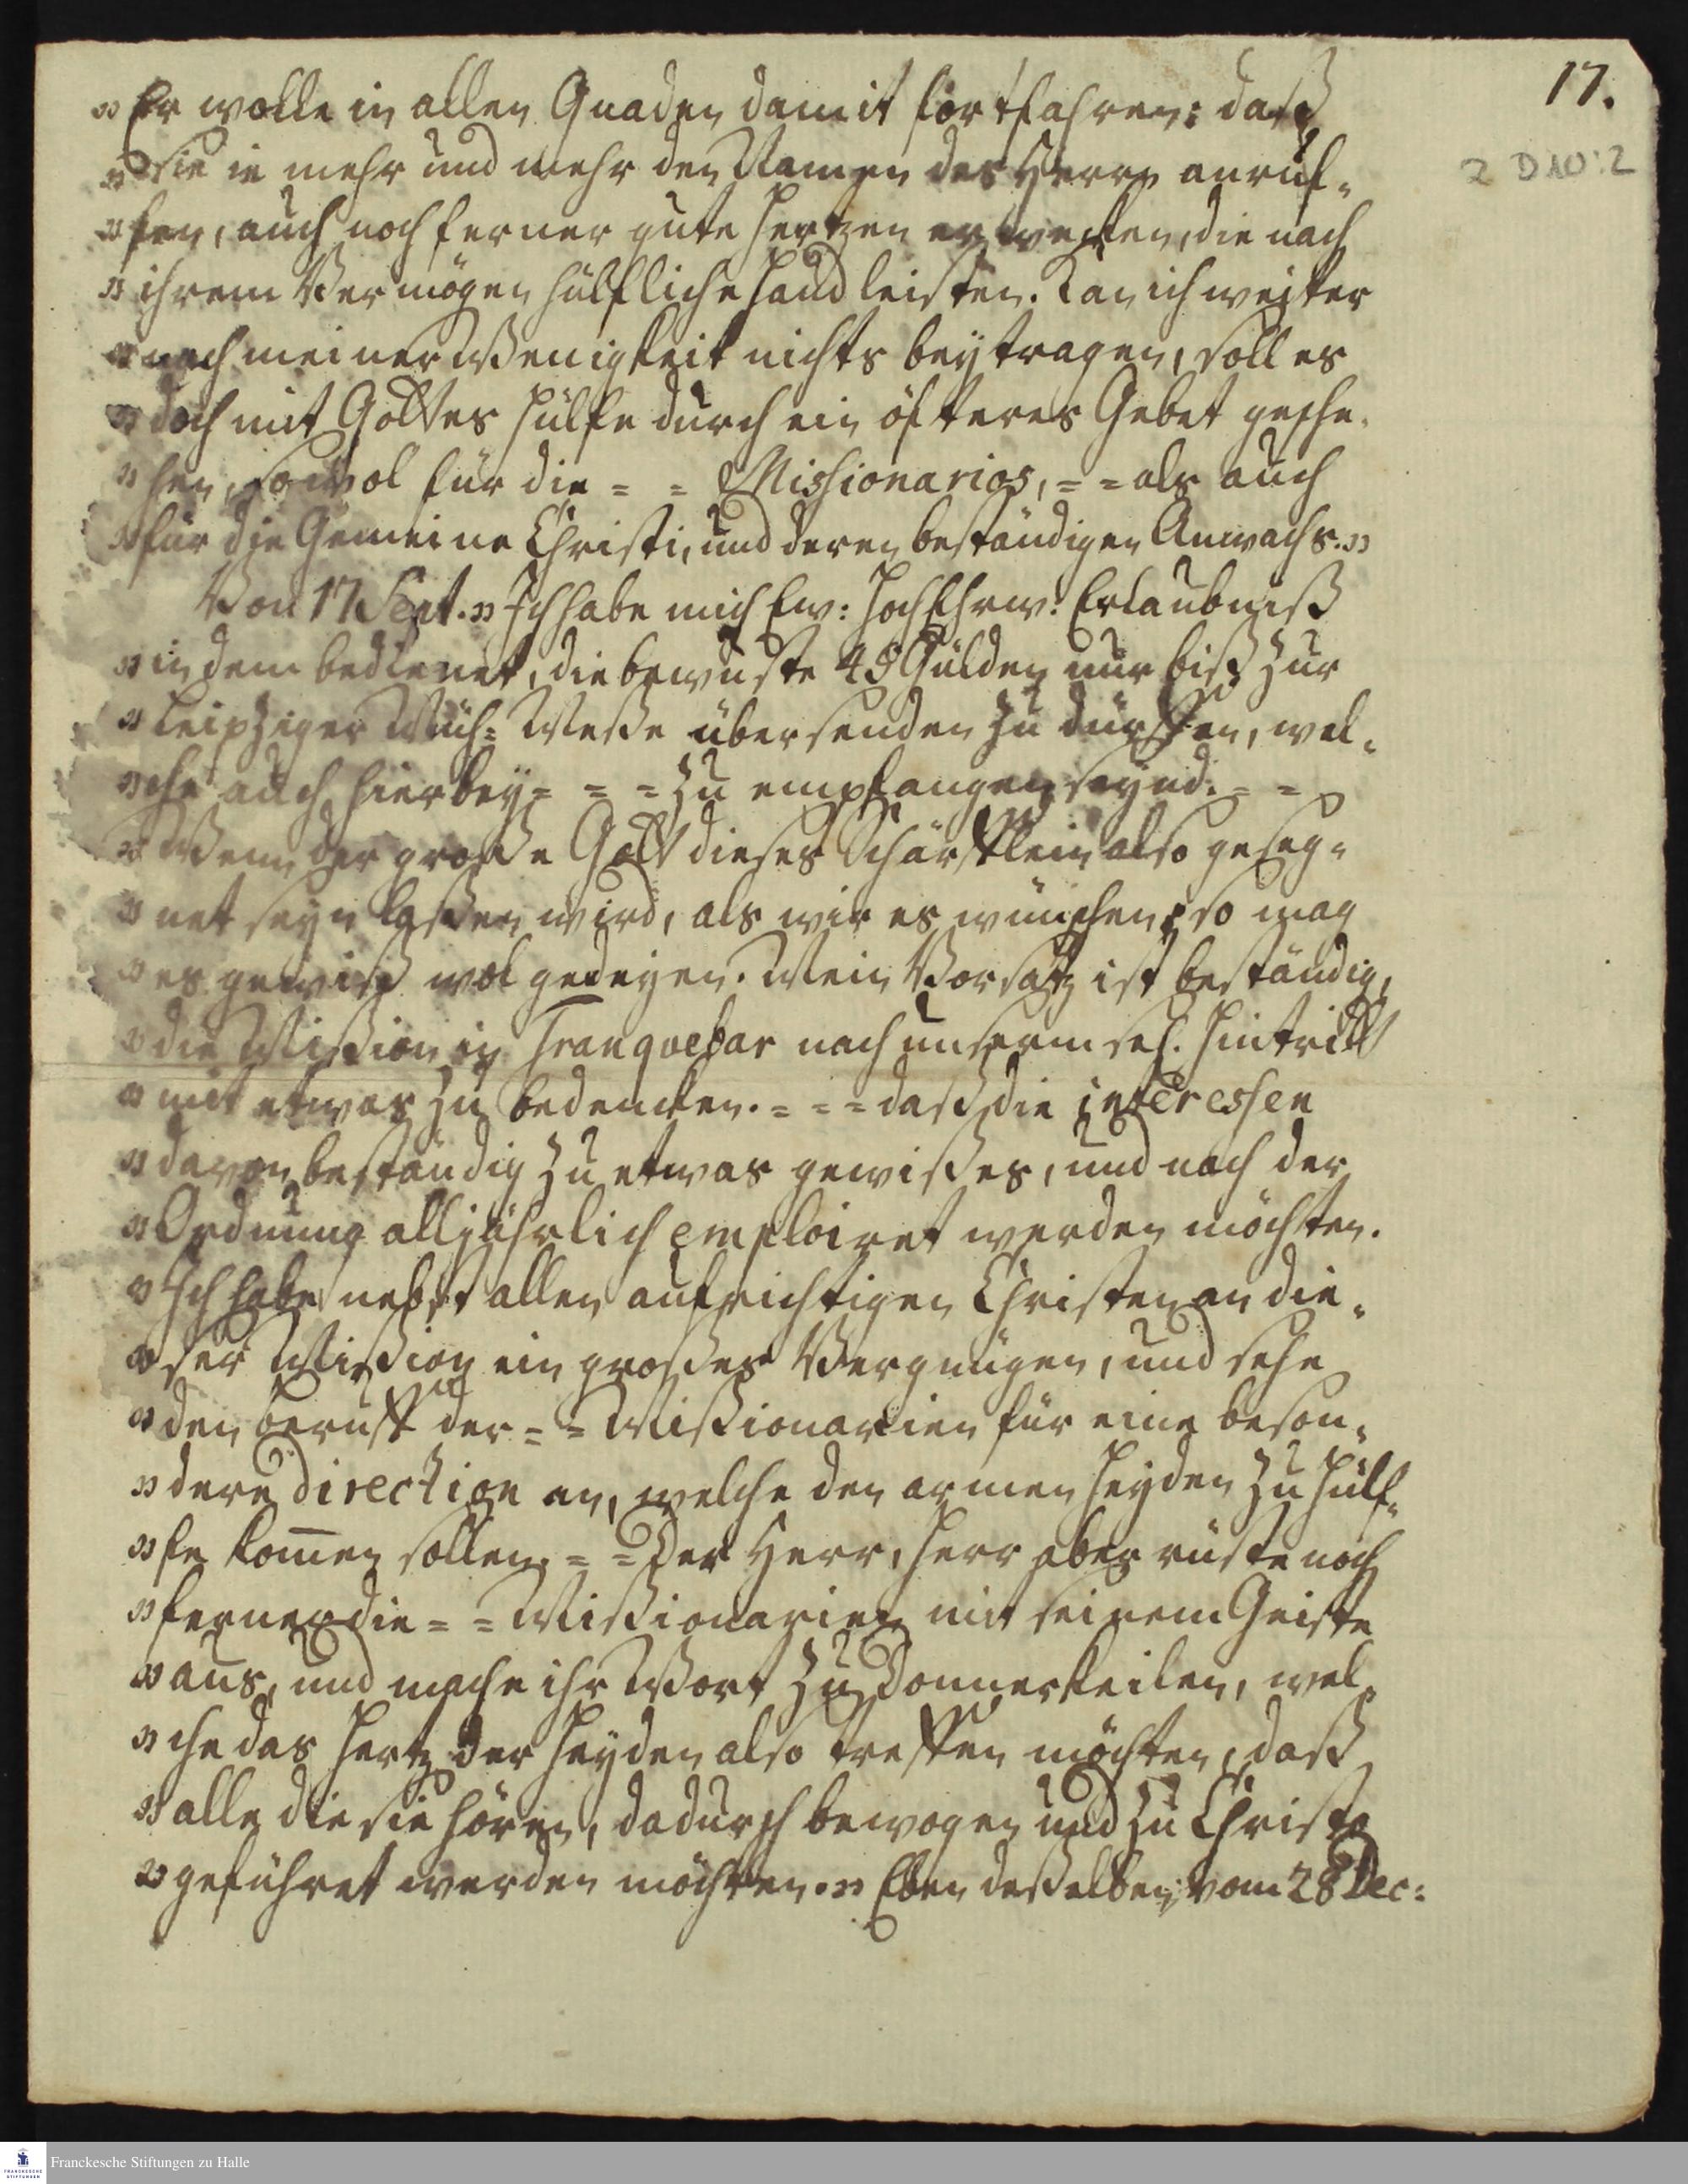 17.
2 D10:2
„Er wolle in allen Gnaden damit fortfahren: daß
„sie ie mehr und mehr den Namen des Herrn anruf-
„fen, auch noch ferner gute Hertzen erwecken, die nach
„ihrem Vermögen hülfliche Hand leisten. Kan ich weiter
„nach meiner Wenigkeit nichts beytragen, soll es
„doch mit Gottes Hülfe durch ein öfteres Gebet gesche-
„hen, sowol für die = = Missionarios, = = als auch
„für die Gemeine Christi, und deren beständigen Anwachs.„
Von 17 Sept. „Ich habe mich Ew: HochEhrw: Erlaubniß
„in dem bedienet, die bewuste 45 Gülden nur biß zur
„Leipziger Mich: Meße übersenden zu dürffen, wel-
„che auch hierbey = = = zu empfangen seynd. = =
„Wenn der große Gott dieses Schärfflein also geseg-
„net seyn laßen wird, als wir es wünschen; so mag
„es gewiß wol gedeyen. Mein Vorsatz ist beständig,
„die Mißion in Tranquebar nach unserm sel. Hintritt
„mit etwas zu bedencken. = = = daß die interessen
„davon beständig zu etwas gewißes, und nach der
„Ordnung alljährlich emploiret werden möchten.
„Ich habe nebst allen aufrichtigen Christen an die-
„ser Mißion ein großes Vergnügen, und sehe
„den Beruff der = = Mißionarien für eine beson-
„dere direction an, welche den armen Heyden zu Hülf-
„fe kom̄en sollen. = = Der Herr, Herr aber rüste noch
„ferner die = = Mißionarien mit seinem Geiste
„aus, und mache ihr Wort zu Donnerkeilen, wel-
„che das Hertz der Heyden also treffen möchten, daß
„alle die sie hören, dadurch bewogen und zu Christo
„geführet werden möchten.„ Eben deßelben vom 28 Dec:
Franckesche Stiftungen zu Halle
FRANCKESCHE
STIFTUNGEN